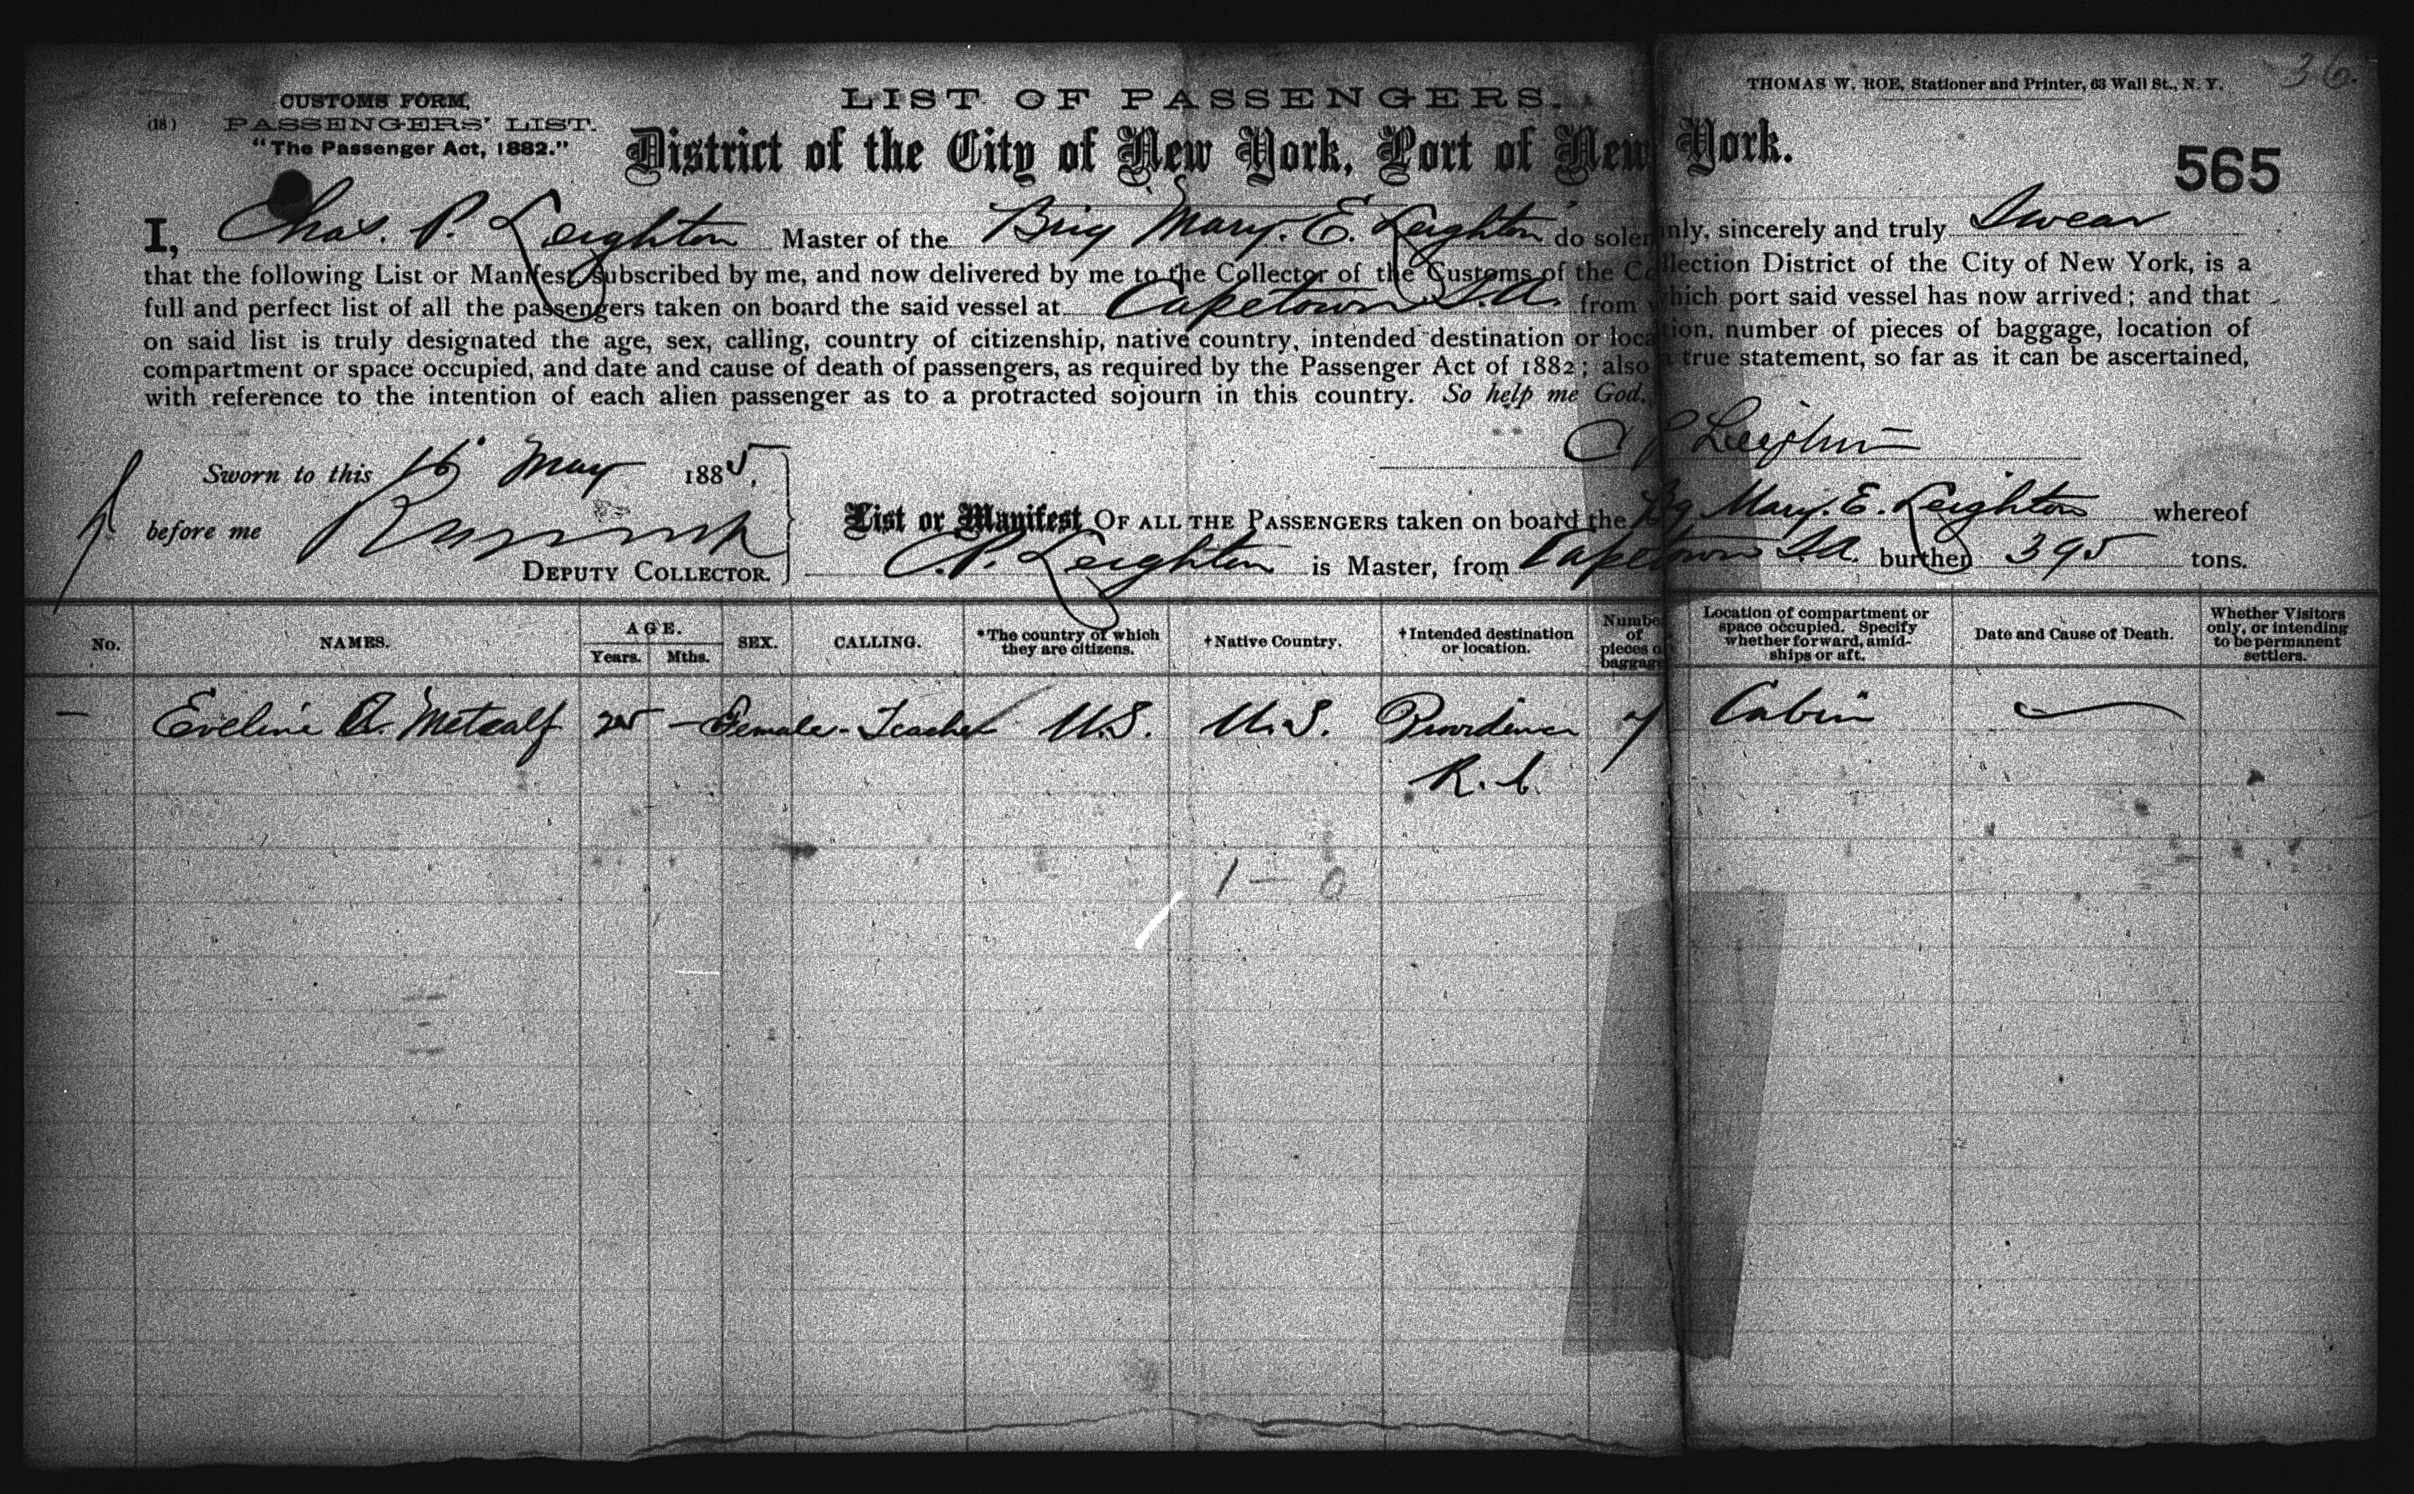 36.
CUSTOMS FORM,
(18) PASSENGERS' LIST.
"The Passenger Act, 1882."
LIST OF PASSENGERS.
THOMAS W. ROE, Stationer and Printer, 63 Wall St., N. Y.
District of the City of New York, Port of New York.
565
I, Chas. P. Leighton Master of the Brig "Mary. E. Leighton" do solemnly, sincerely and truly Swear
that the following List or Manifest subscribed by me, and now delivered by me to the Collector of the Customs of the Collection District of the City of New York, is a
full and perfect list of all the passengers taken on board the said vessel at Capetown S.A. from which port said vessel has now arrived; and that
on said list is truly designated the age, sex, calling, country of citizenship, native country, intended destination or location, number of pieces of baggage, location of
compartment or space occupied, and date and cause of death of passengers, as required by the Passenger Act of 1882; also a true statement, so far as it can be ascertained,
with reference to the intention of each alien passenger as to a protracted sojourn in this country. So help me God.
C P Leighton
Sworn to this 16 May 1885,
before me
DEPUTY COLLECTOR.
List or Manifest OF ALL THE PASSENGERS taken on board the Bg Mary. E. Leighton whereof
C. P. Leighton is Master, from Capetown S.A. burthen 395 tons.
No. NAMES. AGE. Years. Mths. SEX. CALLING. *The country of which they are citizens. †Native Country. †Intended destination or location. Number of pieces of baggage Location of compartment or space occupied. Specify whether forward, amidships or aft. Date and Cause of Death. Whether Visitors only, or intending to be permanent settlers.
— Eveline A. Metcalf 25 — Female - Teacher U.S. U.S. Providence 7 Cabin —
R.I.
1 — 0